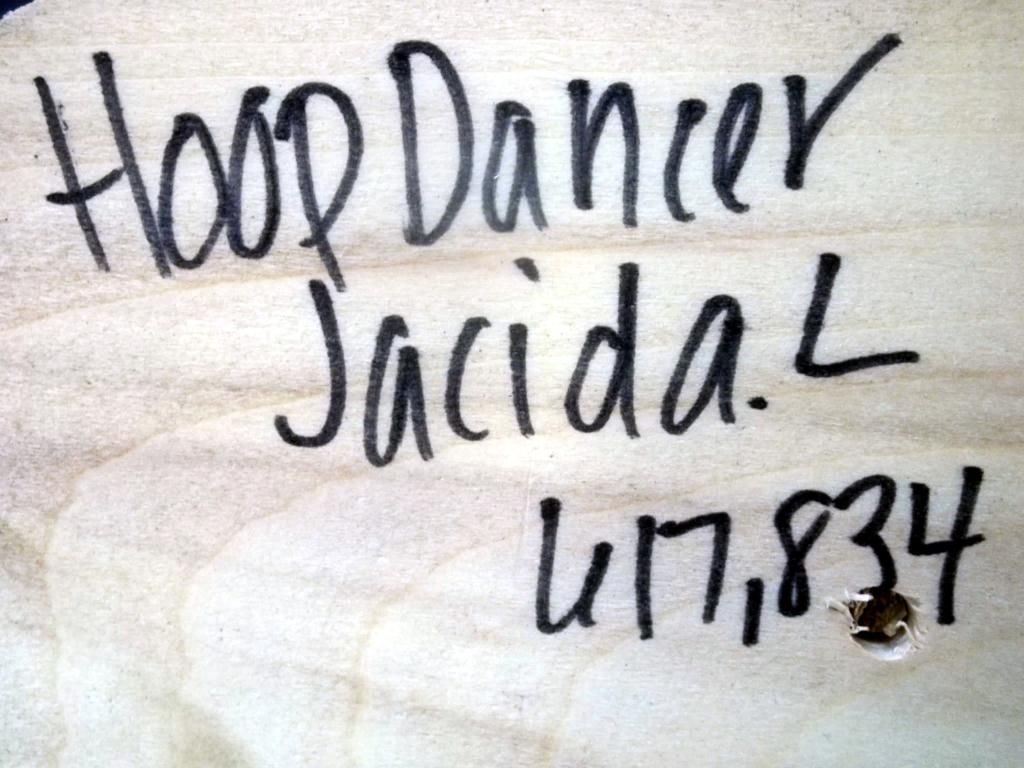 Hoop Dancer
Jacida. L
617,834